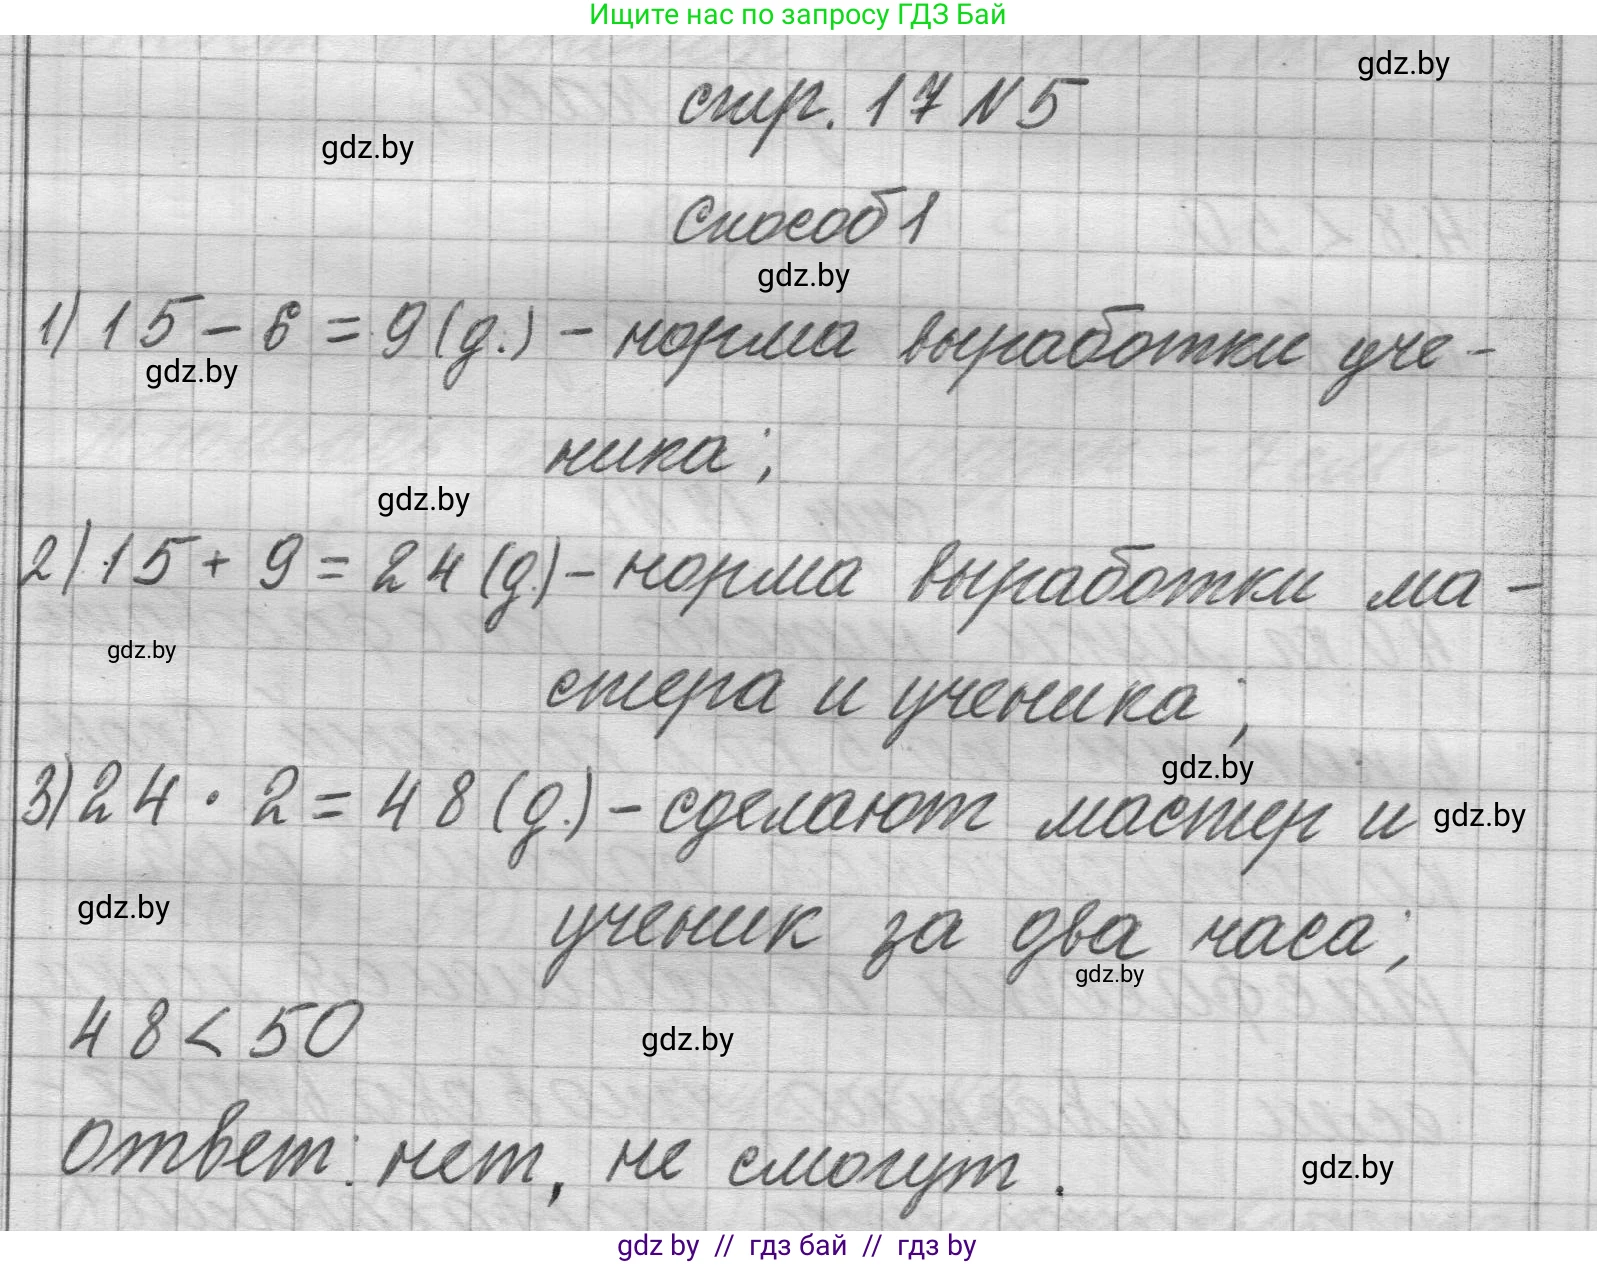 Ищите нас по запросу ГДЗ Бай
gdz.by
стр. 17 N 5
gdz.by
Способ 1
gdz.by
1) 15 - 6 = 9 (д.) - норма выработки уче-
gdz.by
ника;
gdz.by
2) 15 + 9 = 24 (д.) - норма выработки ма-
gdz.by
стера и ученика;
gdz.by
3) 24 · 2 = 48 (д.) - сделают мастер и
gdz.by
gdz.by
ученик за два часа;
gdz.by
48 < 50
gdz.by
Ответ: нет, не смогут.
gdz.by
gdz by // гдз бай // гдз by